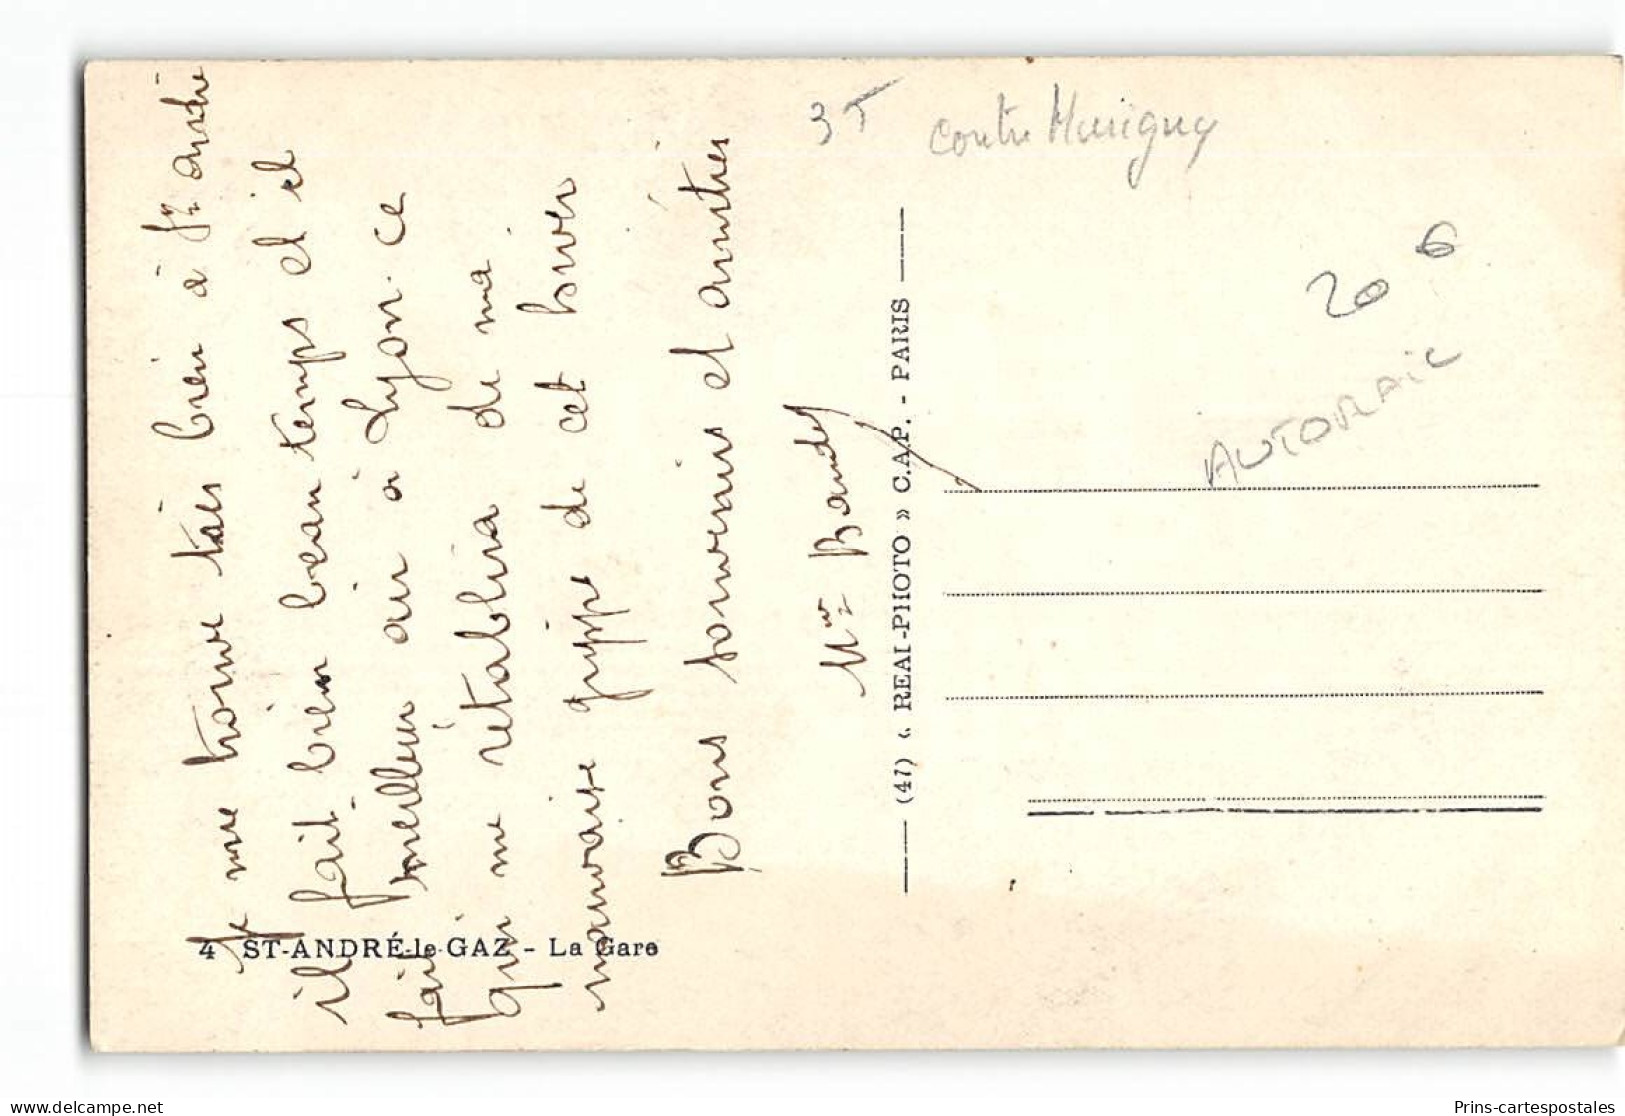 Je me trouve très bien à St André
il fait bien beau temps et il
fait meilleur air à Lyon. ce
qui me rétablira de ma
mauvaise grippe de cet hiver
Bons souvenirs et amitiés
Mme
4 ST-ANDRÉ-le-GAZ - La Gare
(47) « REAL-PHOTO » C.A.P. - PARIS
3T
contre
20 6
AUTORAIL
www.delcampe.net
Prins-cartespostales